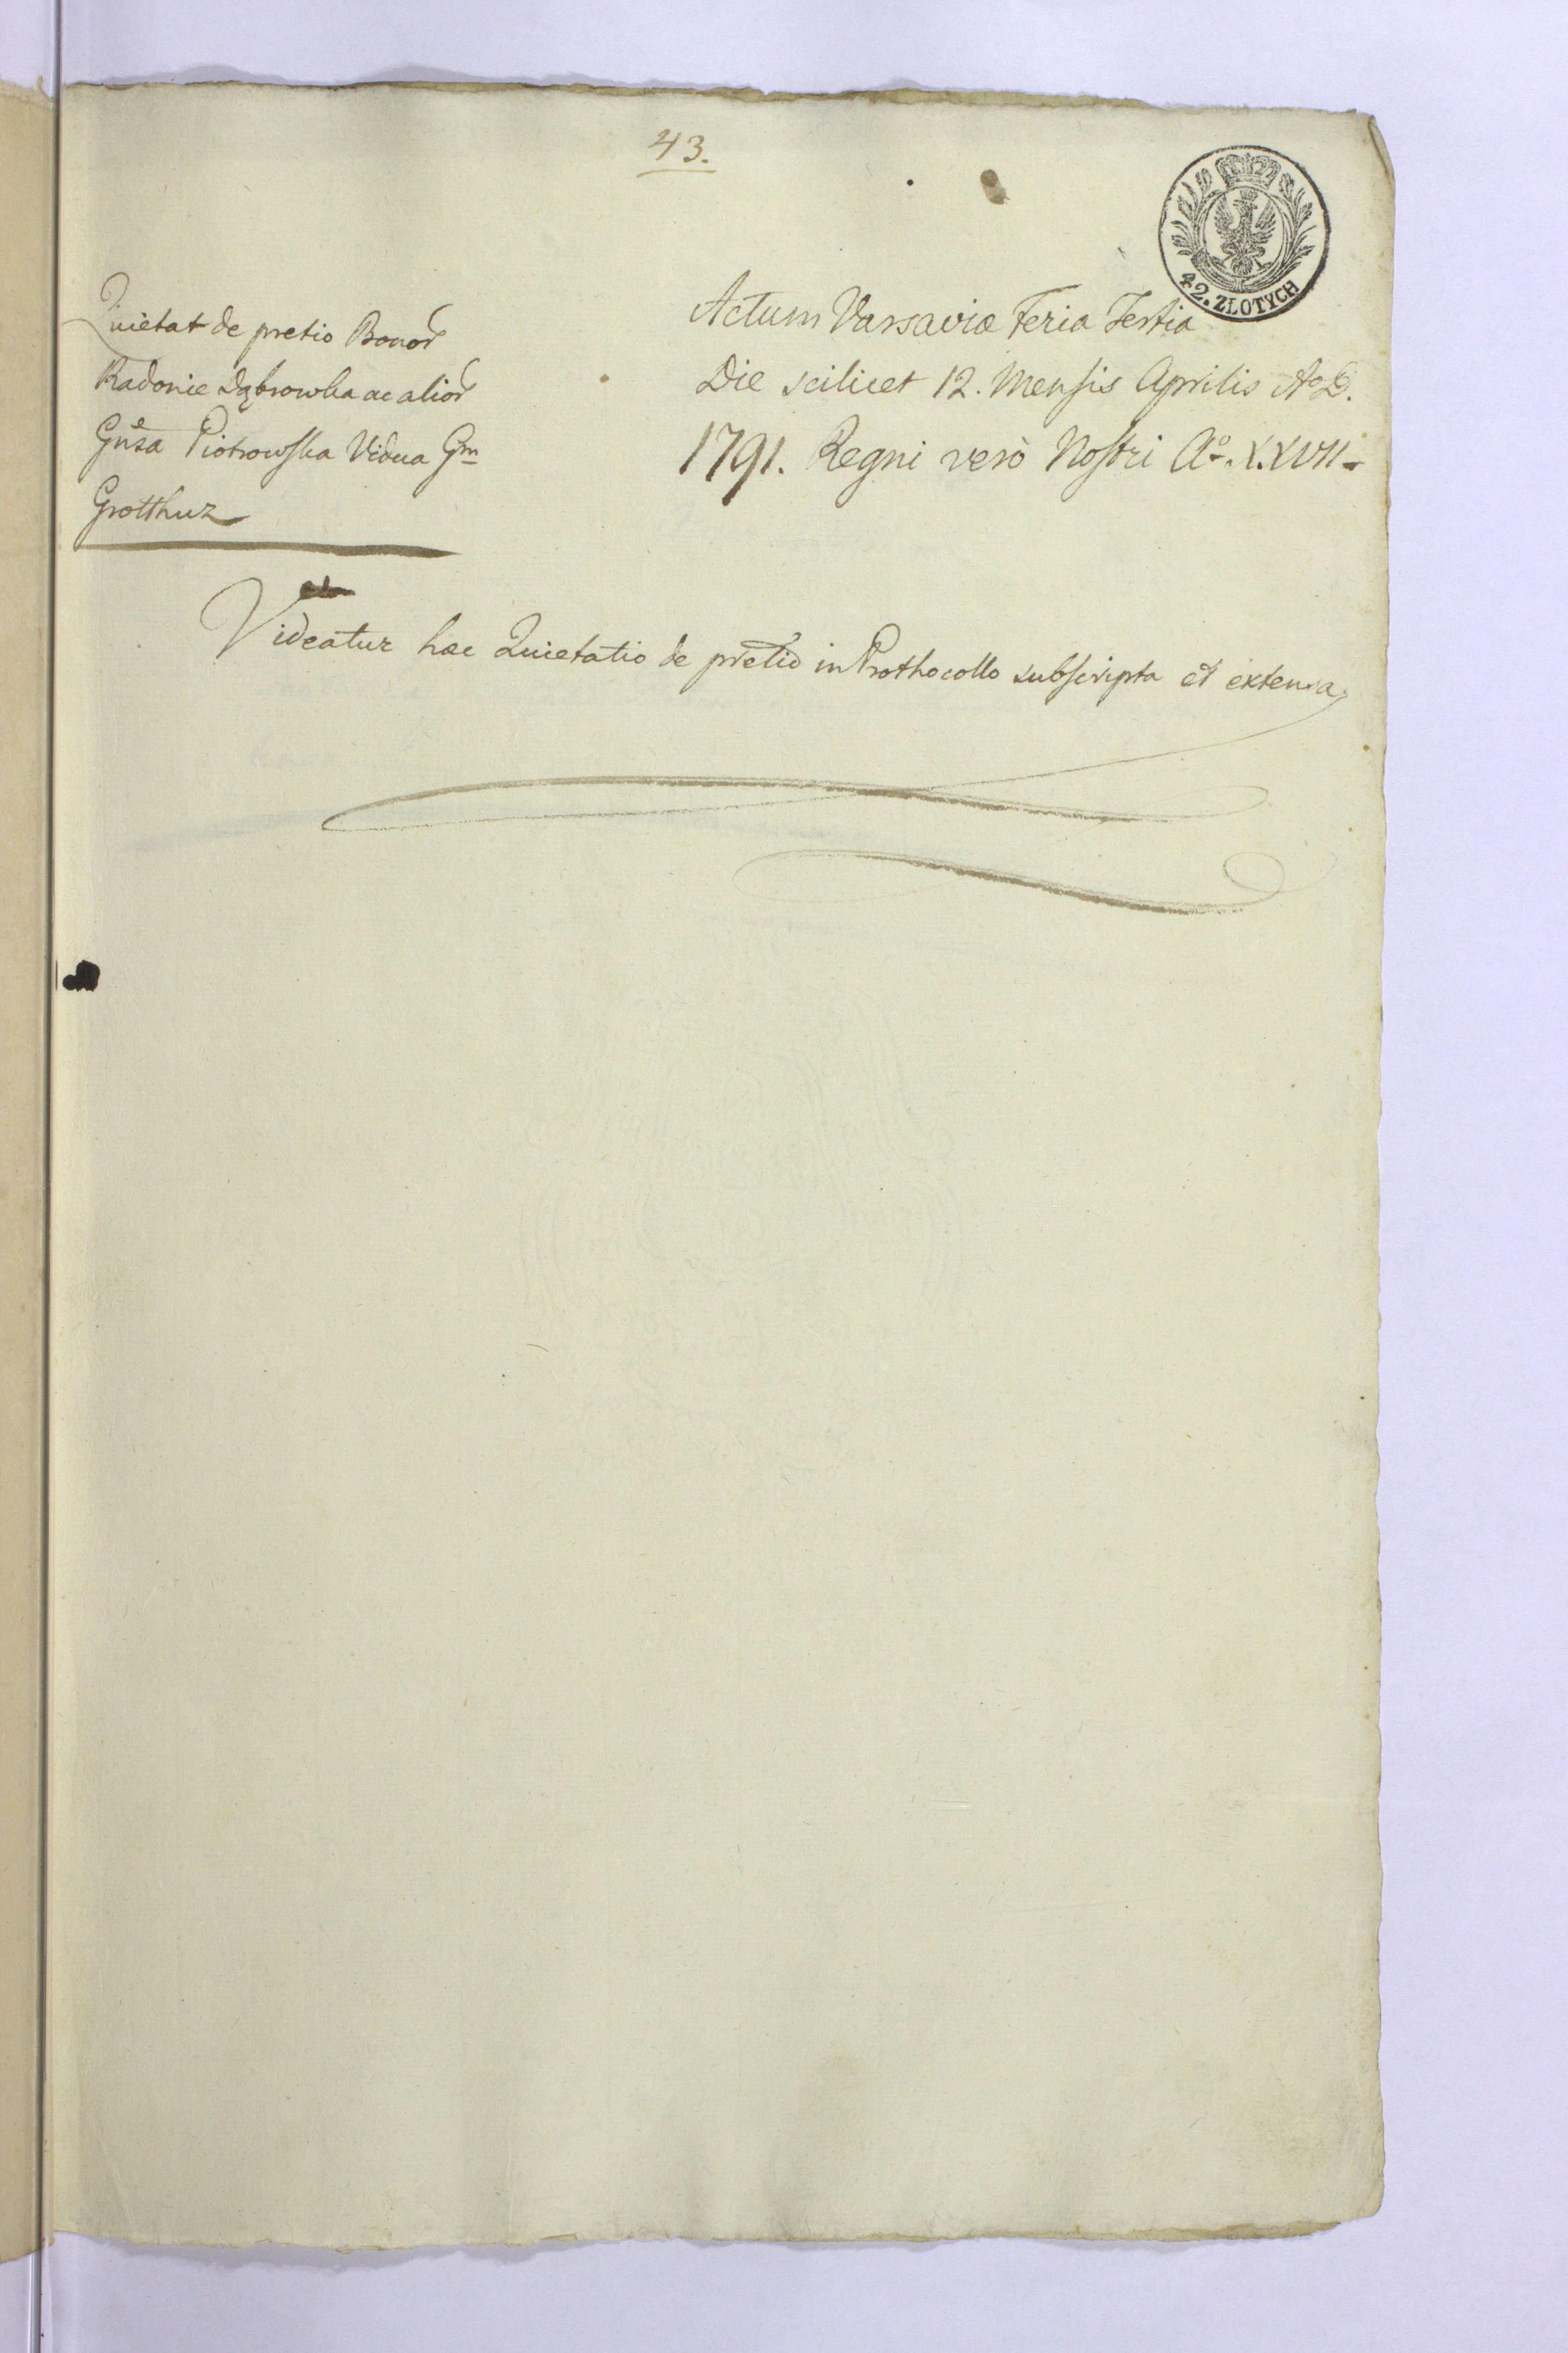 43.
42. ZŁOTYCH
Quietat de pretio Bonor
Radonie Dąbrowka ac alior
Gnsa Piotrowska Vidua Gm
Grotthuz
Actum Varsaviæ Feria Tertia
Die scilicet 12. Mensis Aprilis Ao D.
1791. Regni verò Nostri Aº. X.XVII.
Videatur hæc Quietatio de pretio in Prothocollo subscripta et extensa